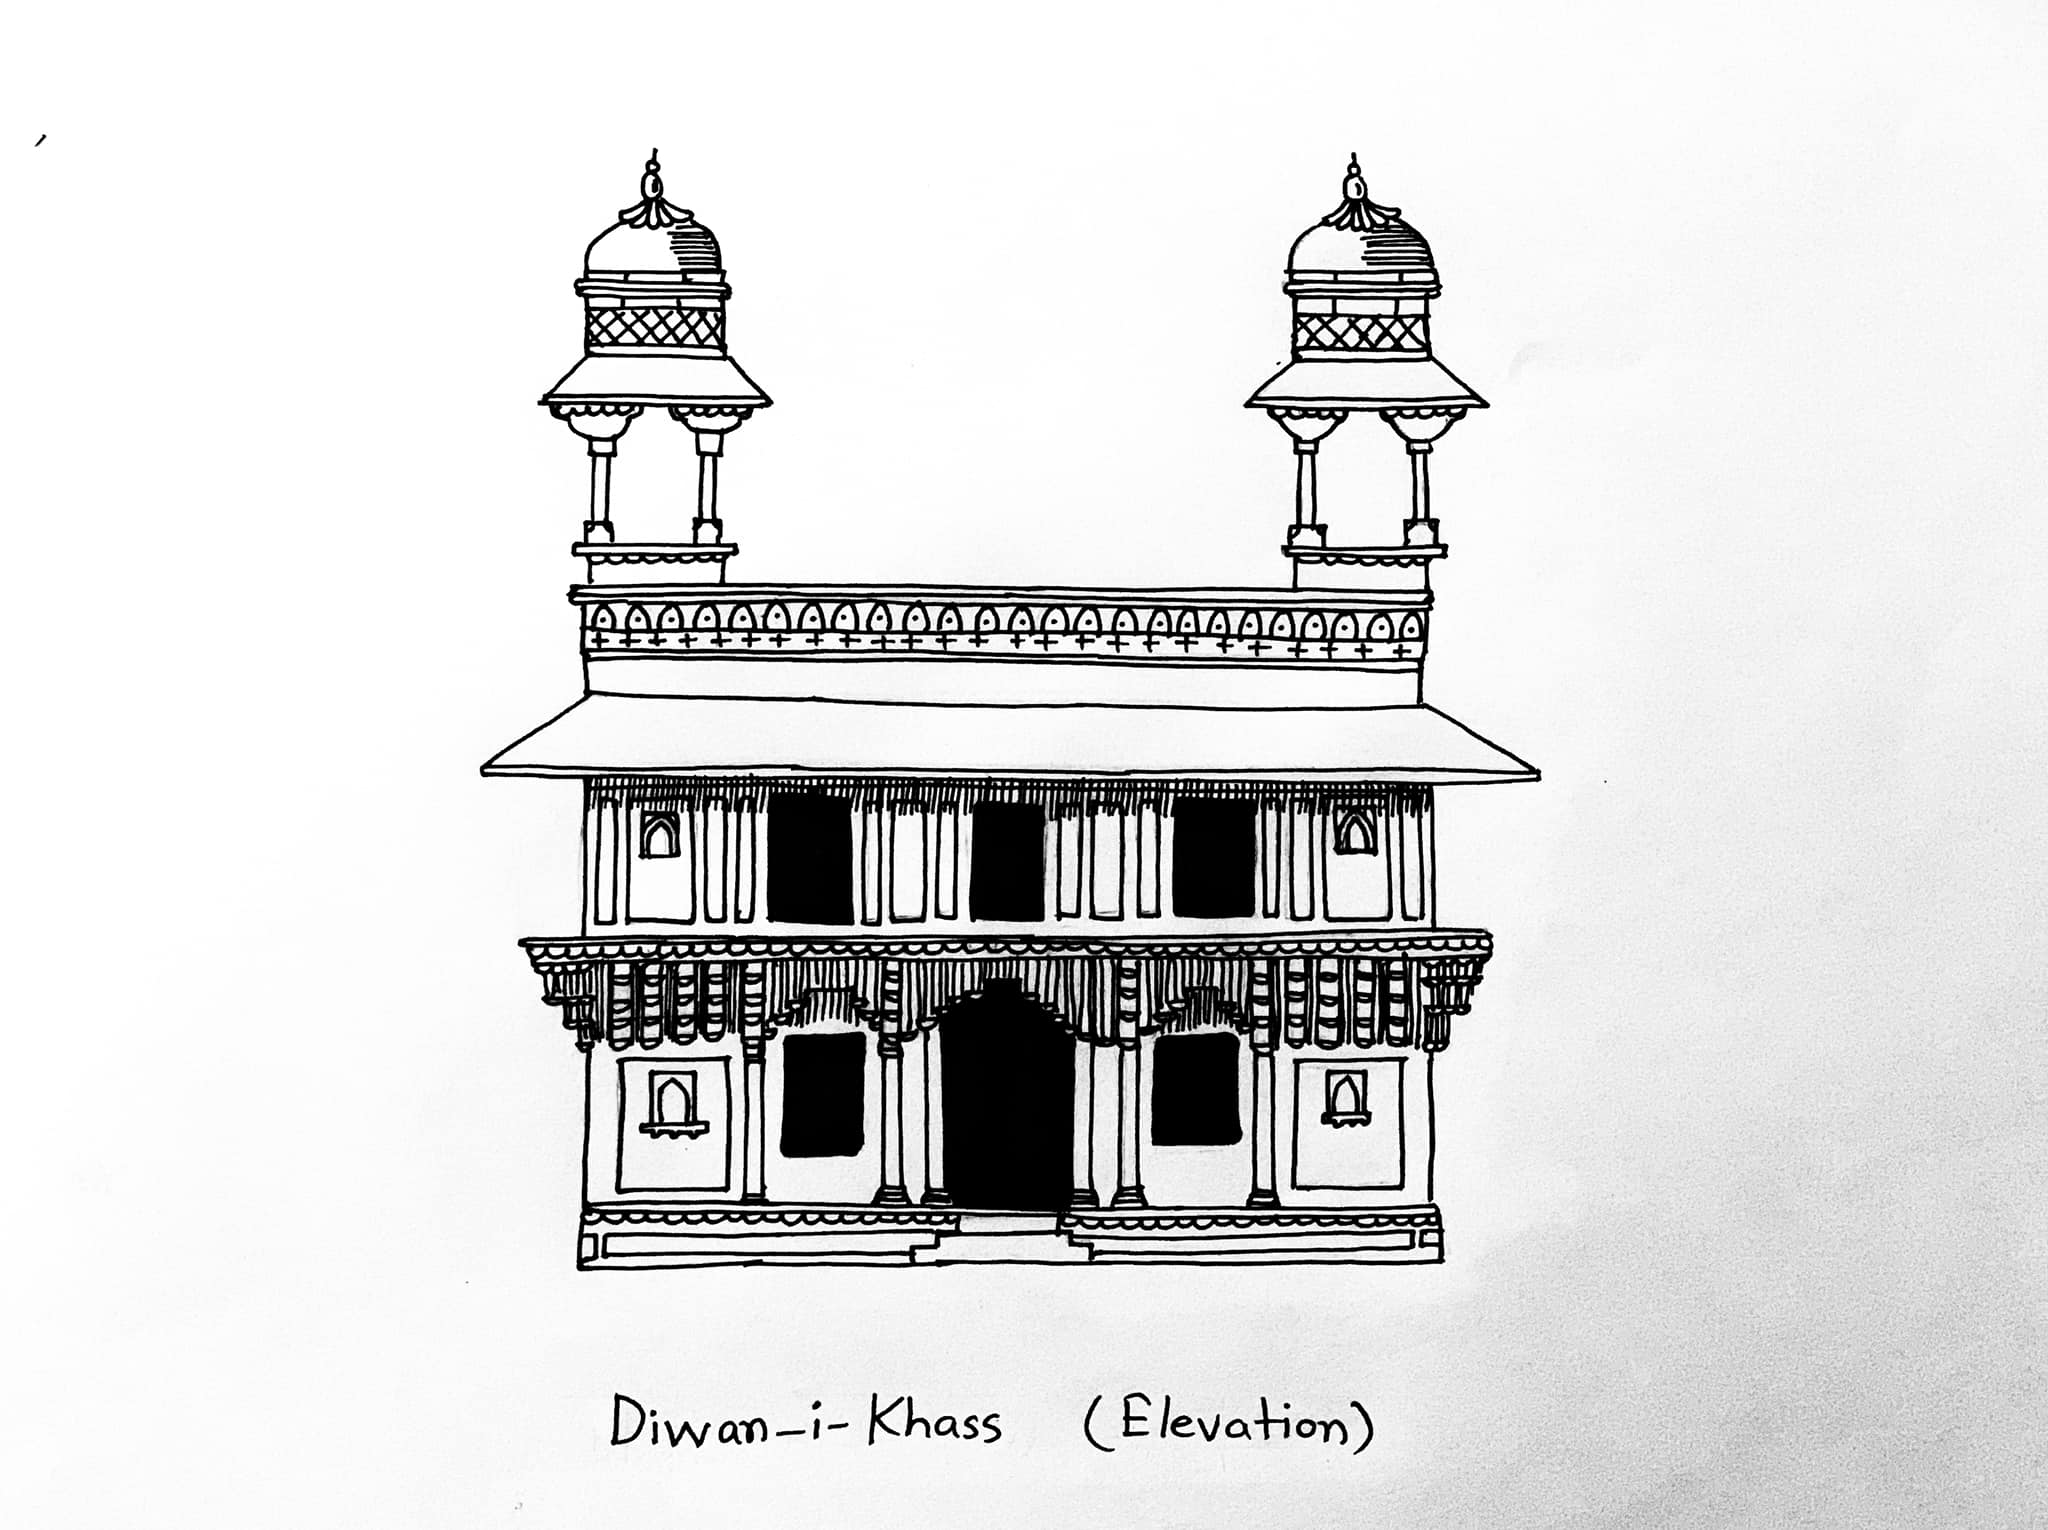 Diwan-i-Khass (Elevation)